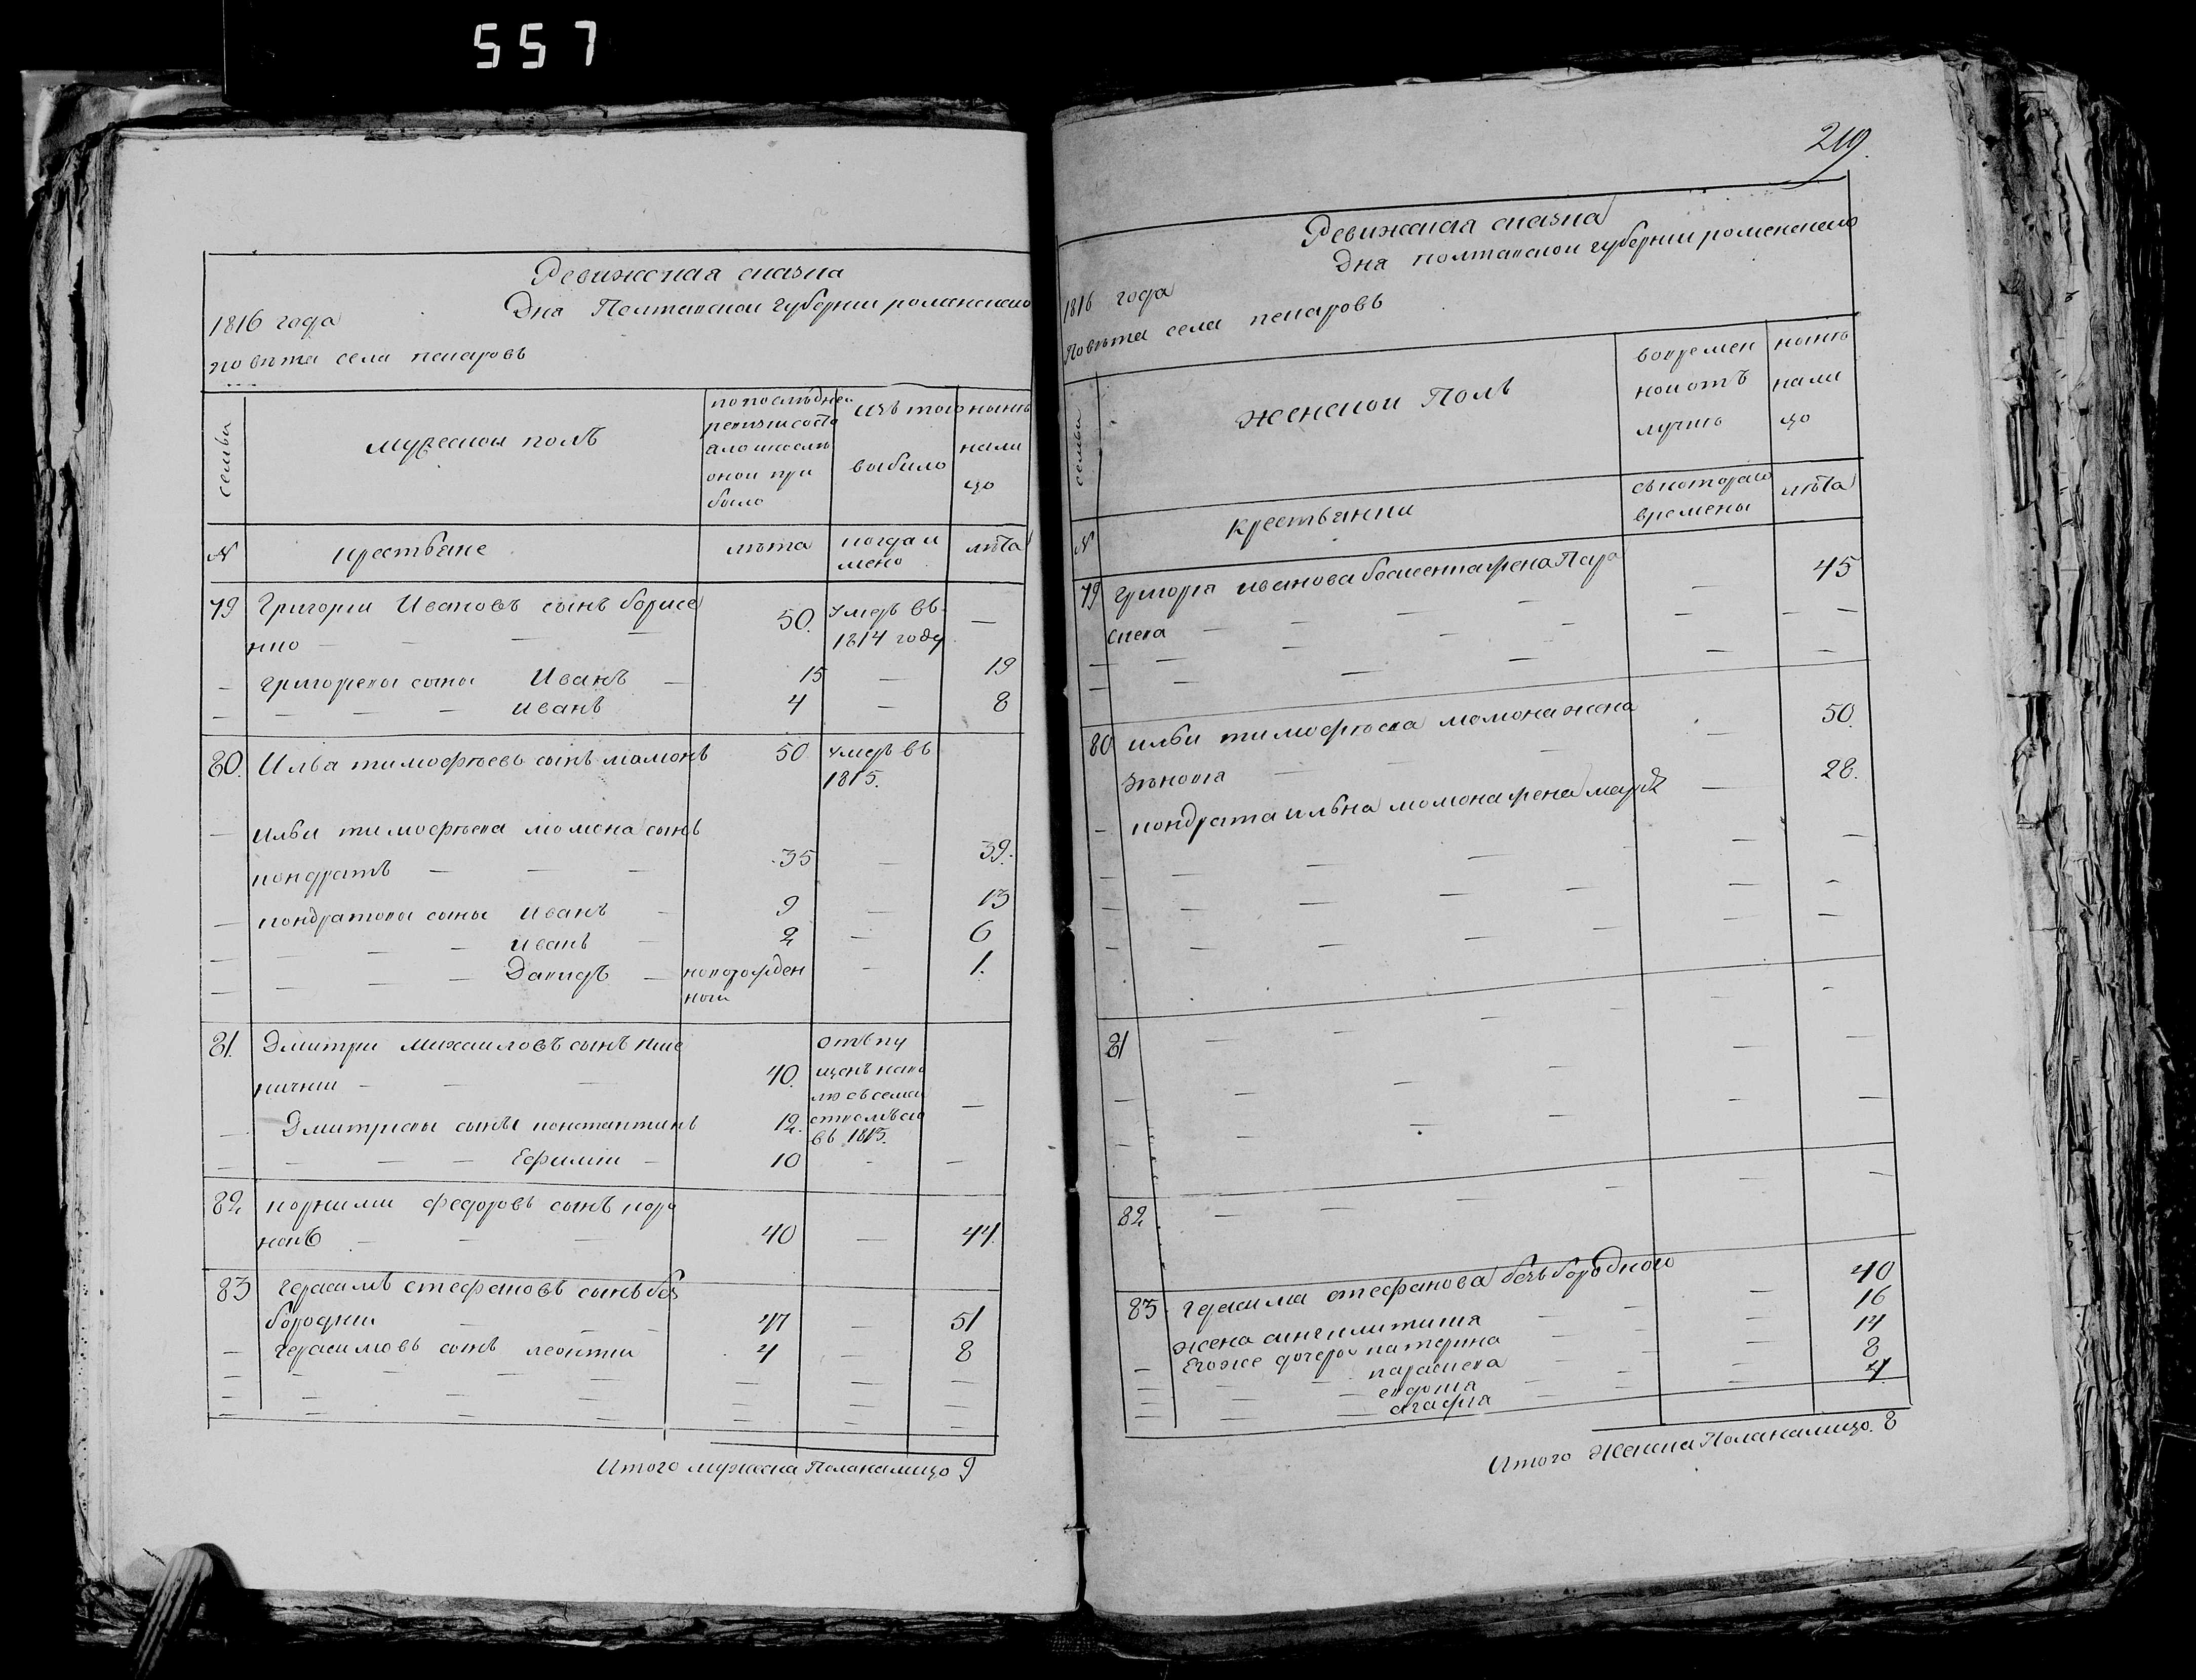 557
Ревижская сказка
1816 года Дня Полтавской губернии роменского
повета села пекаровъ
семьи
мужеской полъ
по последней ревизии состо яло и после оной при было
изъ того выбыло
ныне нали цо
N крестьяне лета когда и лета
79 Григорий Ивановъ сынъ борисе 50. умеръ въ —
нко — — — 1814 году
— григоревы сыны Иванъ — 15 — 19
— — — — иванъ 4 — 8
80. Илья тимофеевъ сынъ мамонъ 50 умеръ въ
1815.
— ильи тимофеева момона сынъ
кондратъ — — — 35 — 39.
— кондратовы сыны иванъ — 9 — 13
— — — — иванъ — 2 — 6
— — — — Давидъ — новорожден — 1.
ной
81. Дмитри михаиловъ сынъ пше отъ пу
ничнии — — — 40. щенъ на во
лю съ семе
— Дмитриевы сыны константинъ 12. —
въ 1813.
— — — — Ефимии — 10 - —
82 корнили федоровъ сынъ воро
новъ — — — 40 — 44.
83 герасимъ стефановъ сынъ без
бородкии — — — 47 — 51
— герасимовъ сынъ леонтии 4 — 8
Итого мужеска Пола налицо 9
219.
Ревижская сказка
1816 года Дня полтавской губернии роменского
Повета села пекаровъ
семьи
женской Полъ
во времен ной отъ лучке
ныне нали цо
N крестьянки
съ которого времены
лета
79 григория иванова борисенка жена Пара — 45
скева — — — — — —
80 ильи тимофеева момона жена — 50.
зеновия — —
— кондрата ильина момона жена марія — 28.
81
82
83. герасима стефанова безъбородкого — 40
жена
— Егоже дочери катерина — 16
— — — параскева — 14
— — — евдокия — 8
— — — агафия — 4
Итого Женска Пола налицо. 8